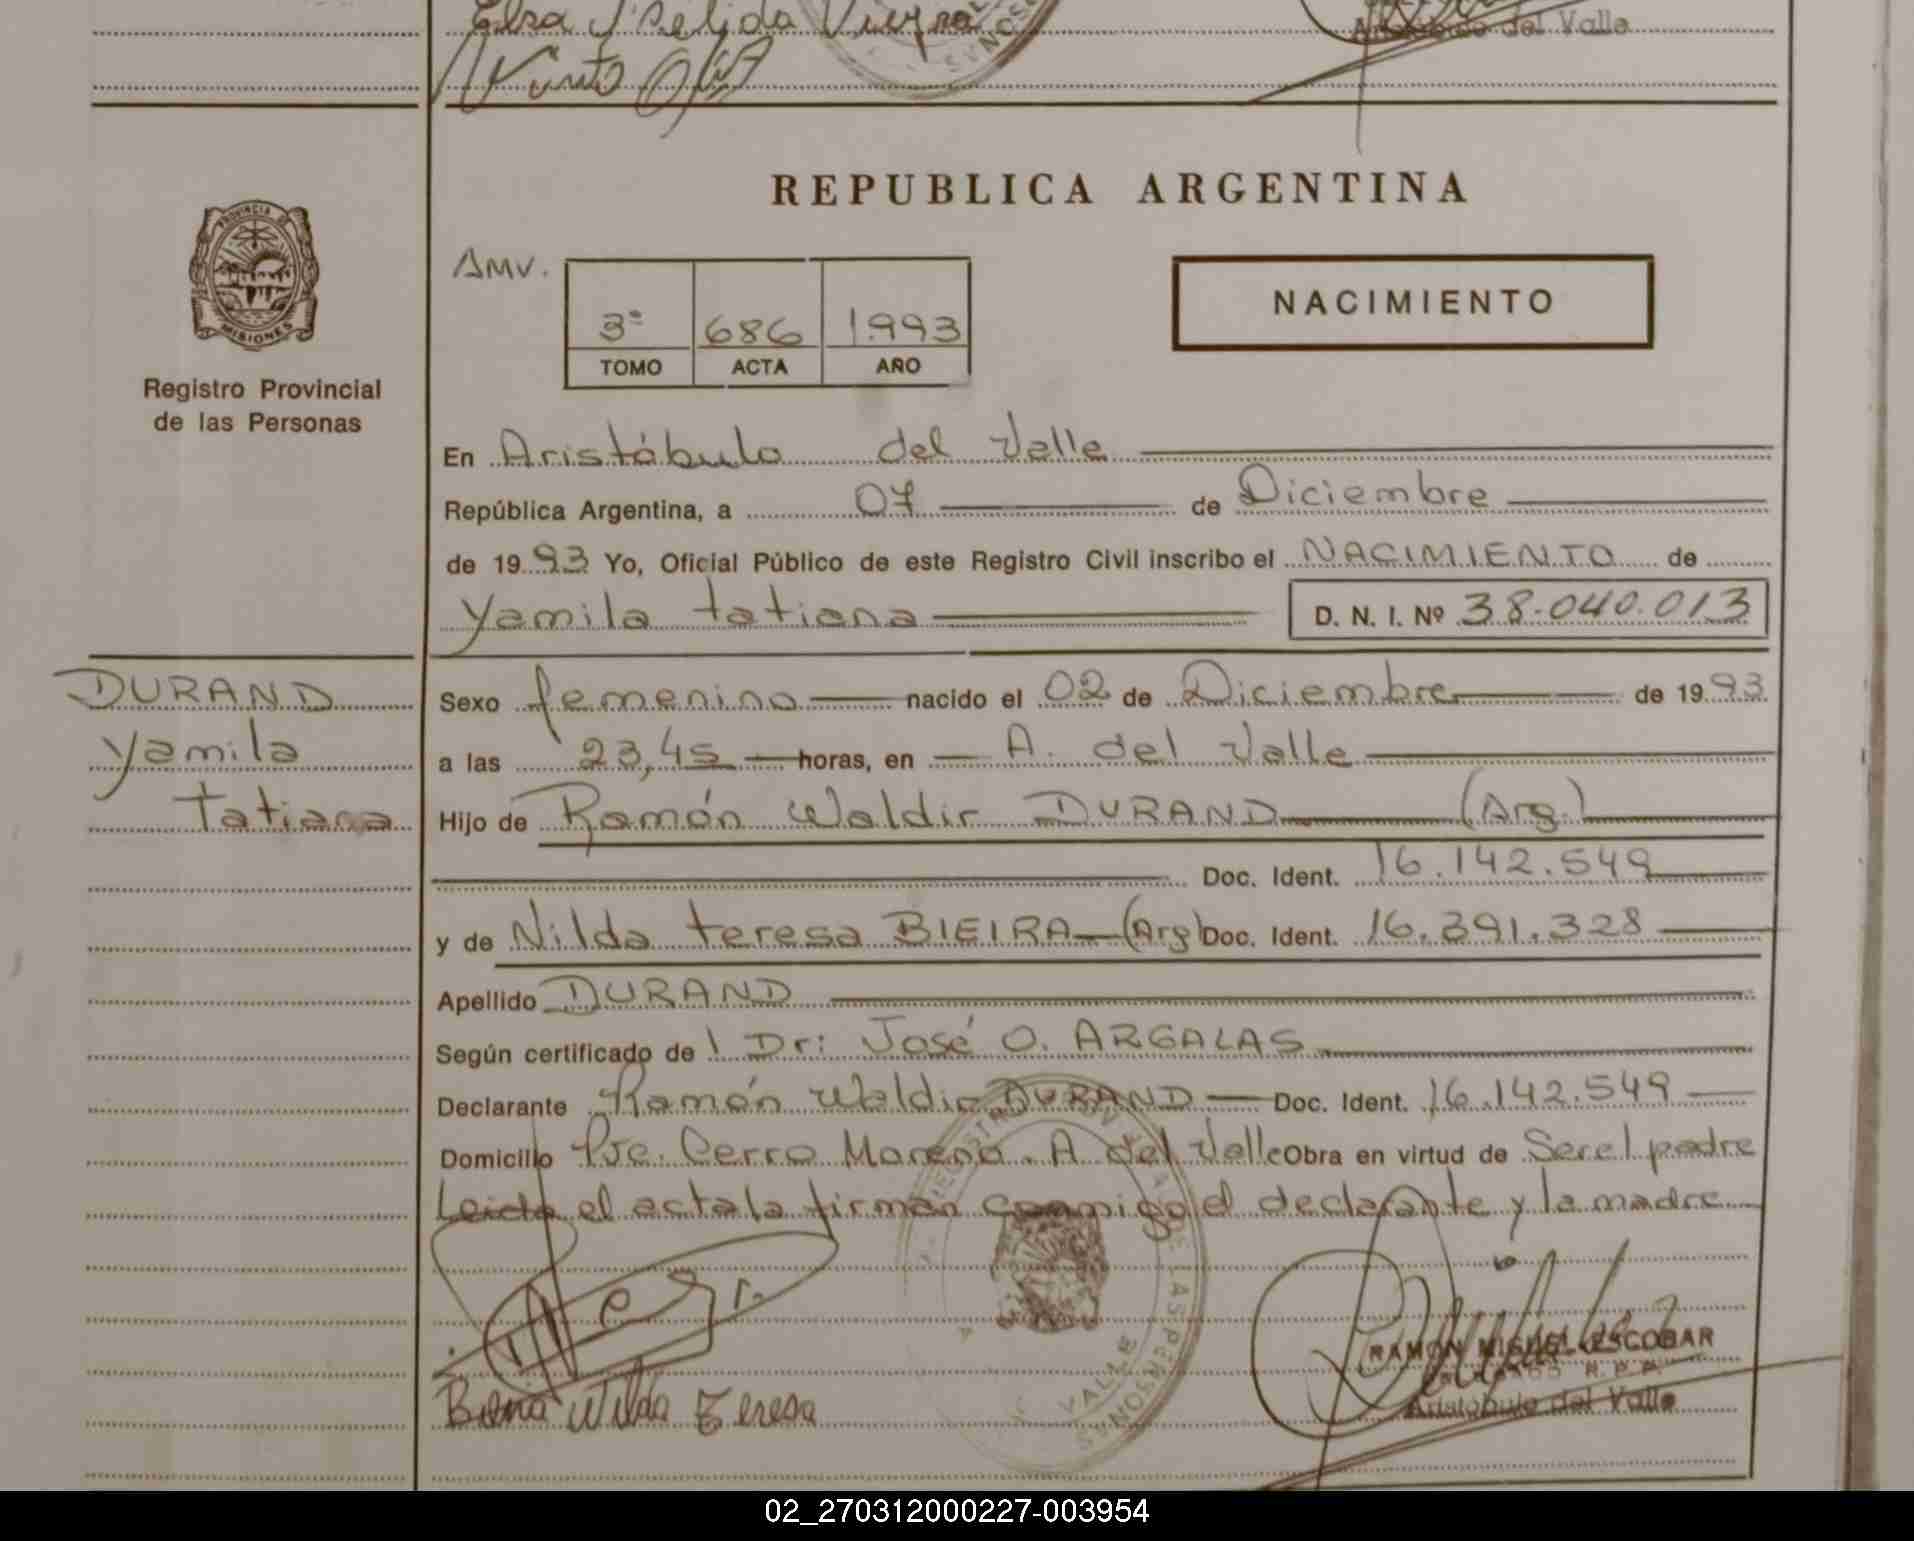 Elsa Nélida Vieyra
Aristóbulo del Valle
PROVINCIA DE
MISIONES
Registro Provincial
de las Personas
REPUBLICA ARGENTINA
AMV.
3º 686 1.993
TOMO ACTA AÑO
NACIMIENTO
En Aristóbulo del Valle
República Argentina, a 07 de Diciembre
de 19 93 Yo, Oficial Público de este Registro Civil inscribo el NACIMIENTO de
Yamila Tatiana D. N. I. Nº 38.040.013
DURAND
Yamila
Tatiana
Sexo femenino nacido el 02 de Diciembre de 19 93
a las 23,45 horas, en A. del Valle
Hijo de Ramón Waldir DURAND (Arg.)
Doc. Ident. 16.142.549
y de Nilda Teresa BIEIRA (Arg) Doc. Ident. 16.391.328
Apellido DURAND
Según certificado de l Dr: José O. ARGALAS
Declarante Ramón Waldir DURAND Doc. Ident. 16.142.549
Domicilio Pje. Cerro Moreno. A del Valle Obra en virtud de Ser el padre
Leida el acta la firman conmigo el declarante y la madre
VALLE
DE LAS PERSONAS
RAMON MIGUEL ESCOBAR
R. P. P.
Aristóbulo del Valle
Nilda Teresa
02_270312000227-003954